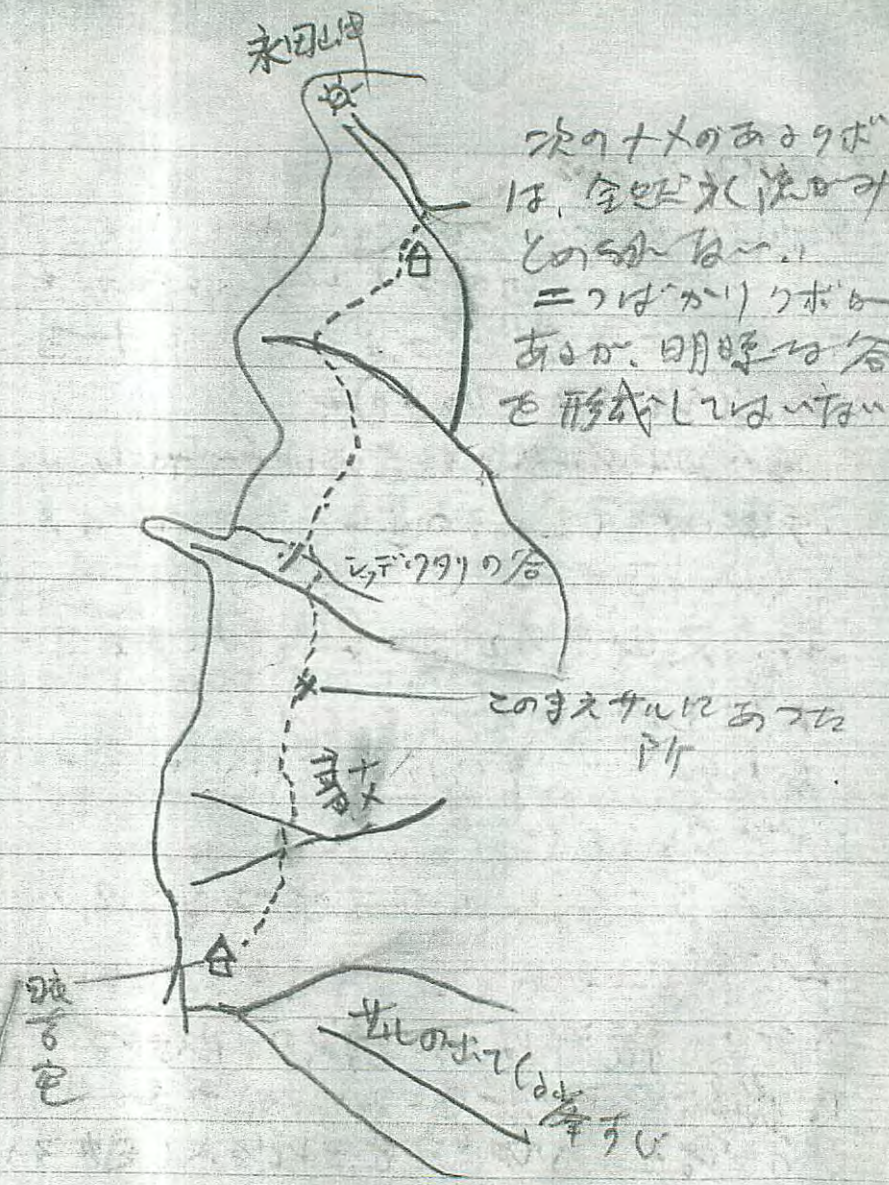 永田岬
次のナメのあるクボ
は、全然水流がみ
とめられない。
二つばかりクボが
あるが、明瞭な谷
を形成してはいない
の谷
このまえサルにあった
所
ナメ
サルのみてくる峯すじ